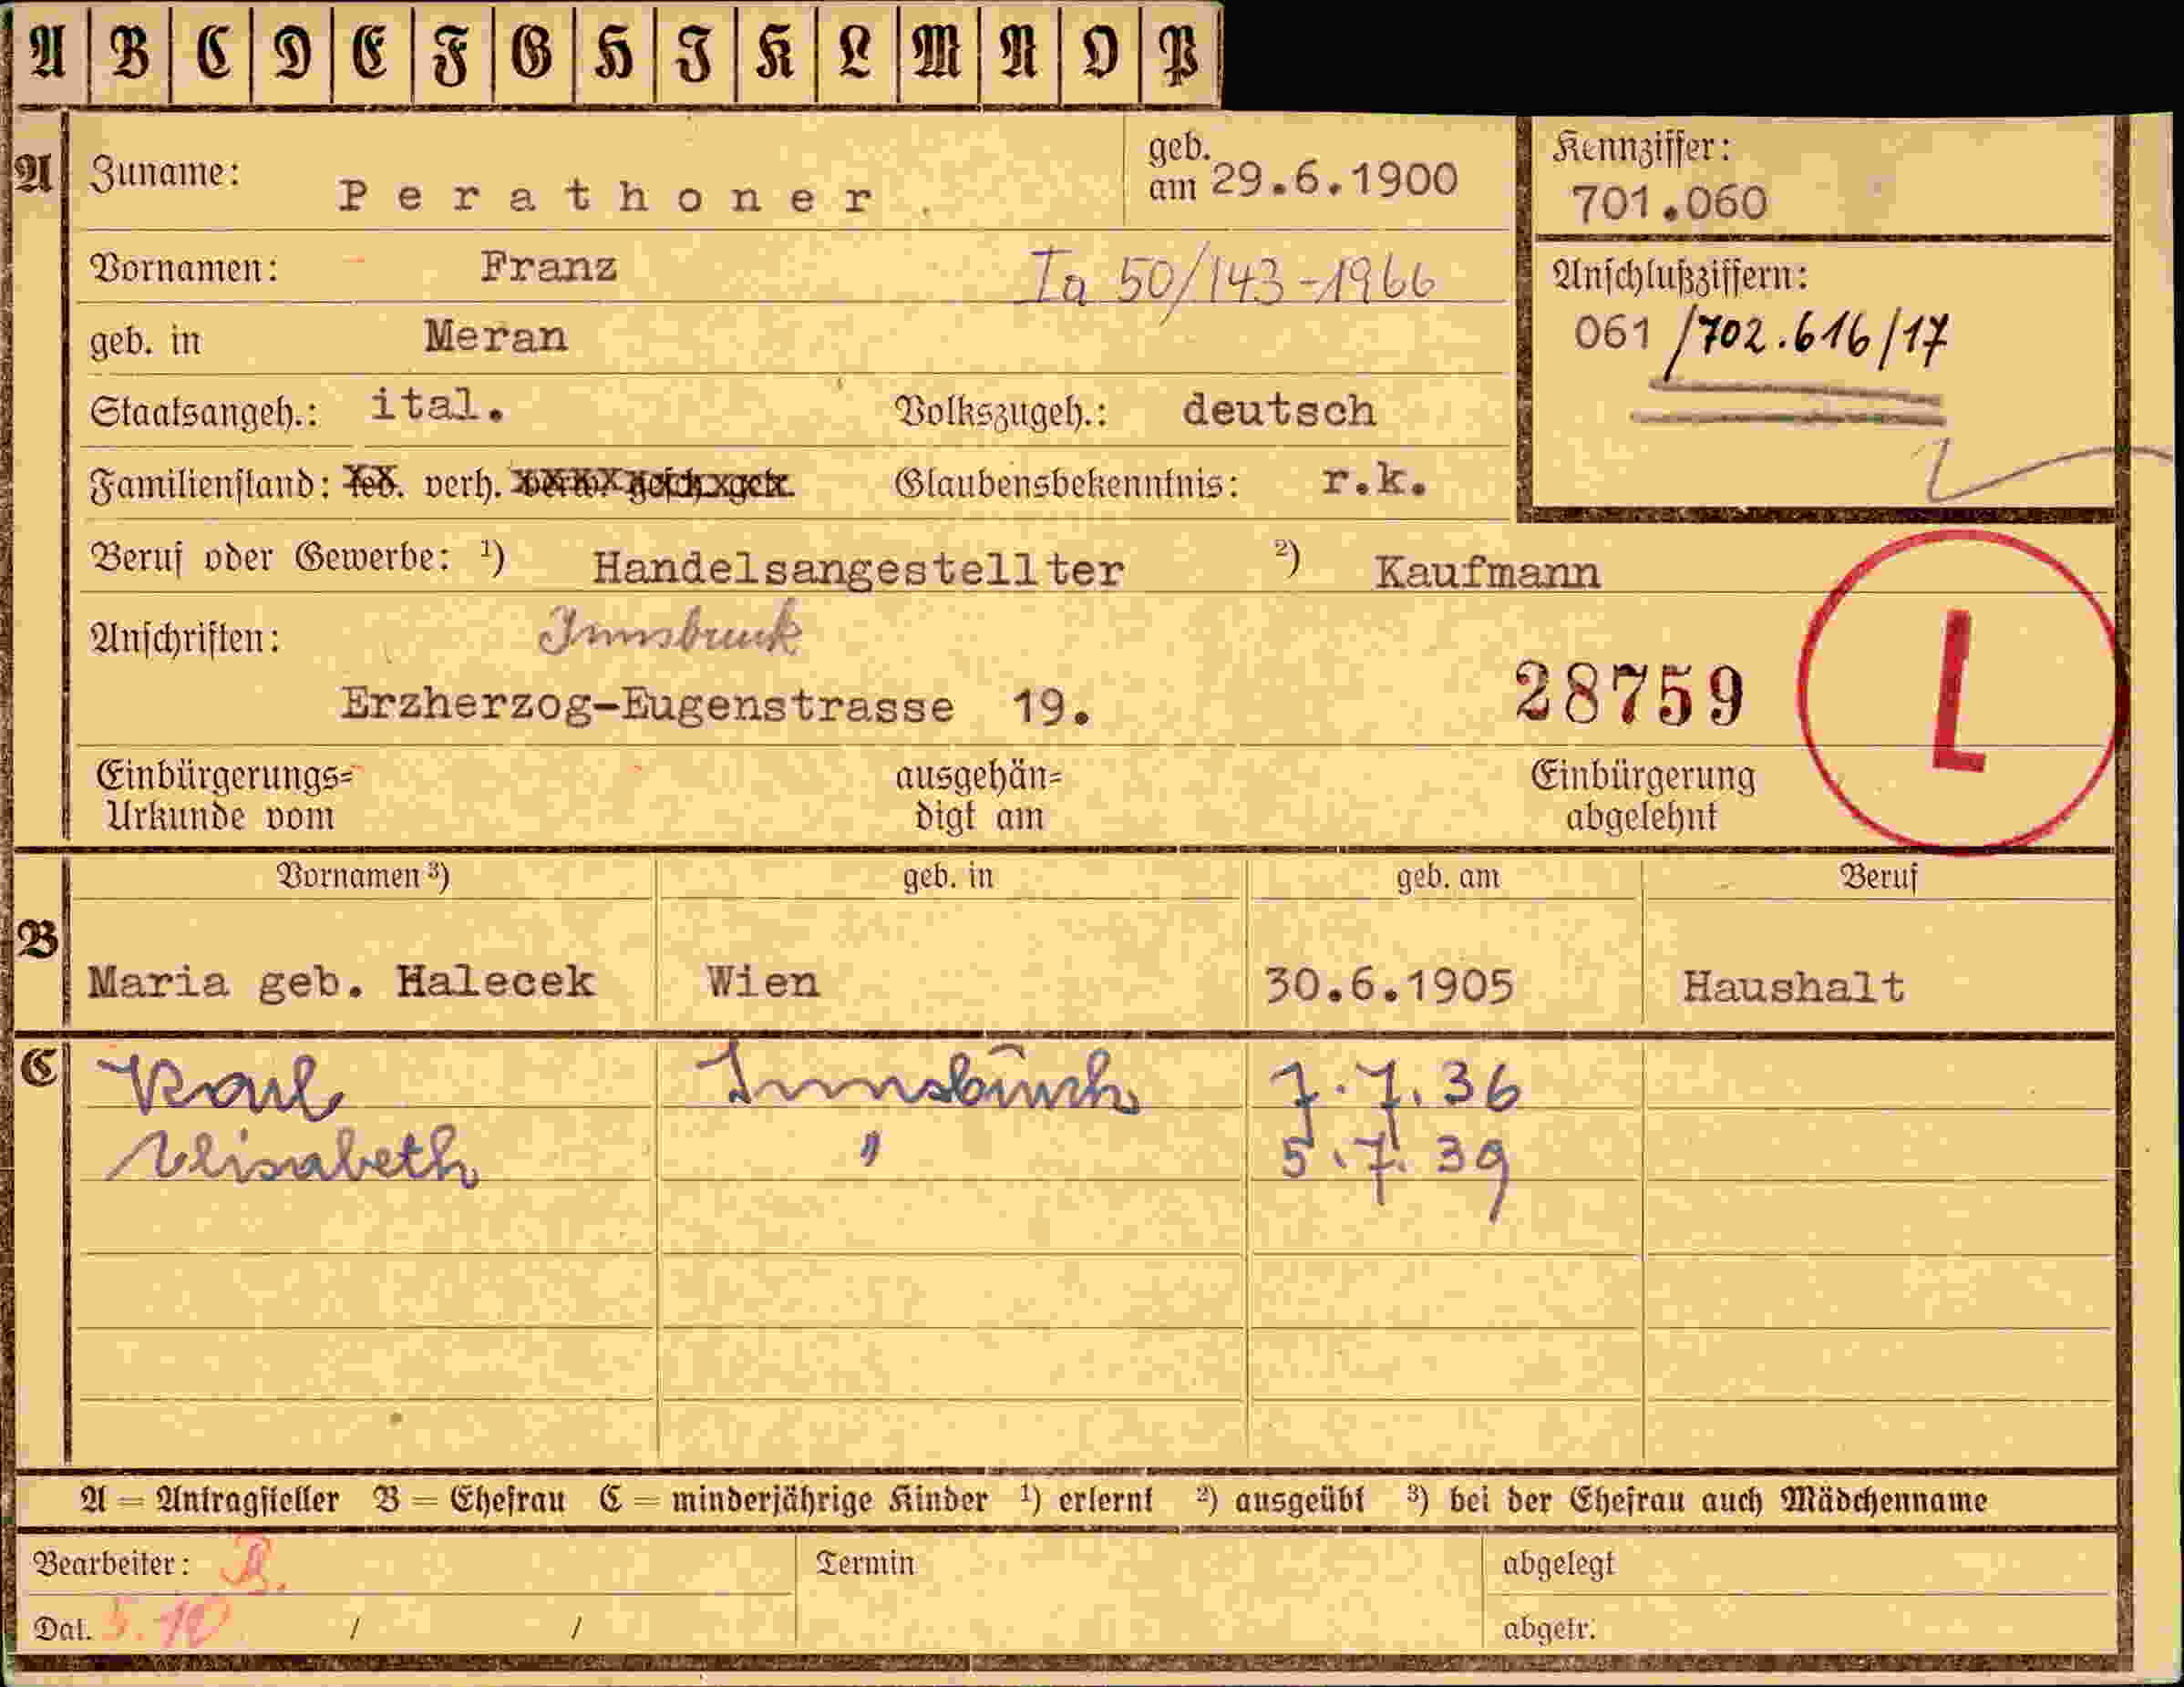 A B C D E F G H I K L M N O P
A Zuname: Perathoner geb. am 29.6.1900
Kennziffer: 701.060
Vornamen: Franz Ia 50/143-1966
Anschlußziffern:
geb. in Meran
061 /702.616/17
Staatsangeh.: ital. Volkszugeh.: deutsch
Familienstand: led. verh. verw. gesch. getr. Glaubensbekenntnis: r.k.
Beruf oder Gewerbe: ¹) Handelsangestellter ²) Kaufmann
Anschriften: Innsbruck
Erzherzog-Eugenstrasse 19. 28759 L
Einbürgerungs= ausgehän= Einbürgerung
Urkunde vom digt am abgelehnt
Vornamen ³) geb. in geb. am Beruf
B Maria geb. Halecek Wien 30.6.1905 Haushalt
C Karl Innsbruck 7.7.36
Elisabeth " 5.7.39
A = Antragsteller B = Ehefrau C = minderjährige Kinder ¹) erlernt ²) ausgeübt ³) bei der Ehefrau auch Mädchenname
Bearbeiter: Termin abgelegt
Dat. 5.10 / / abgetr.